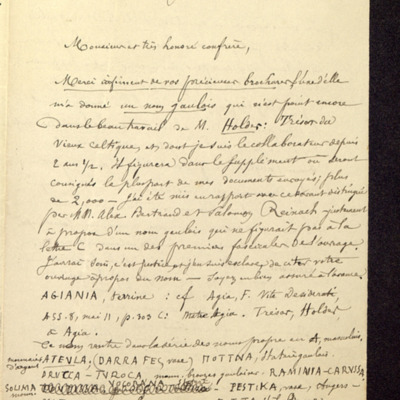 Monsieur et très honoré confrère,
Merci infiniment de vos précieuses brochures, l'une d'elle
m'a donné un nom gaulois qui n'est point encore
dans le beau travail de M. Holder: Trésor du
Vieux Celtique, et dont je suis le collaborateur depuis
2 ans ½. Il figurera dans le supplément où seront
consignés la plupart de mes documents envoyés; plus
de 2,000 — J'ai été mis en rapport avec ce savant distingué
par MM. Alex. Bertrand et Salomon Reinach justement
à propos d'un nom gaulois qui ne figurait pas à la
lettre C dans un des premiers fascicules de l'ouvrage.
J'aurai soin, c'est justice, de citer votre
ouvrage à propos du nom — soyez en bien assuré à l'avance.
AGIANIA, : cf Agia, F. Vita Desiderati,
ASS. 8, mai II, p. 303 C: mater Agia. Trésor, Holder
à Agia.
Ce nom rentre dans la série des noms propres au A, masculins.
monnaies d'argent ATEVLA, (DARRA FEC, vase) MOTTINA, Statère gaulois.
DRUCCA - TVROCA, monn. bronze gauloises - RAMINIA - CARNISSA
SOLIMA PESTIKA, vase, Angers -